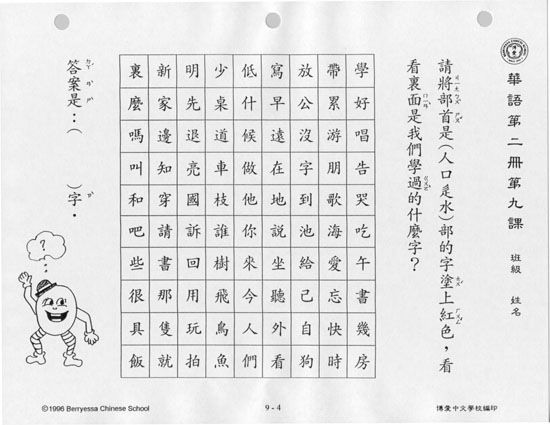 華語第二冊第九課 班級 姓名
請將部首是(人口辵水)部的字塗上紅色,看
看裏面是我們學過的什麼字?
學好唱告哭吃午書幾房
帶累游朋歌海愛忘快時
放公沒字到池給己自狗
寫早遠在地說坐聽外看
低什候做他你來今人們
少桌道車枝誰樹飛鳥魚
明先退亮國訴回用玩拍
新家邊知穿請書那隻就
裏麼嗎叫和吧些很具飯
答案是:( )字。
?
©1996 Berryessa Chinese School
9 - 4
博愛中文學校編印